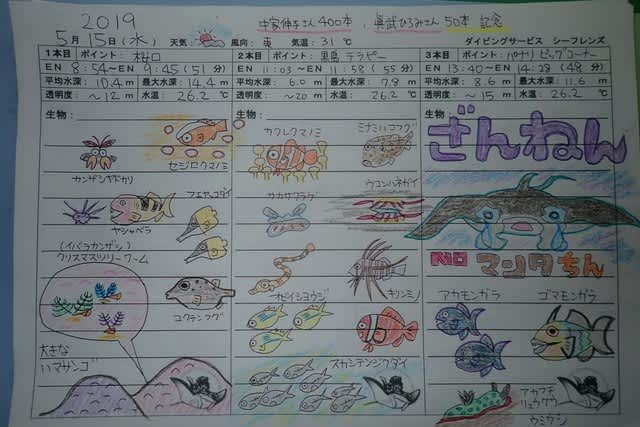 2019
5月15日(水)
天気:
風向: 東
気温: 31℃
400本
50本 記念
ダイビングサービス シーフレンズ
1本目 ポイント:
EN 8:54～EN 9:45(51分)
平均水深: 10.4m 最大水深: 14.4m
透明度: ～12m 水温: 26.2℃
生物:
セジロクマノミ
カンザシヤドカリ
フエヤッコダイ
ヤシャベラ
(イバラカンザシ)
クリスマスツリーワーム
コクテンフグ
大きな
ハマサンゴ
2本目 ポイント: 黒島 テラピー
EN 11:03～EN 11:58(55分)
平均水深: 6.0m 最大水深: 7.8m
透明度: ～20m 水温: 26.2℃
生物:
カクレクマノミ
ミナミハコフグ
ウコンハネガイ
キリンミノ
スカシテンジクダイ
3本目 ポイント: パナリ ビッグコーナー
EN 13:40～EN 14:23(43分)
平均水深: 8.6m 最大水深: 11.6m
透明度: ～15m 水温: 26.2℃
生物:
ざんねん
NO マンタちん
アカモンガラ
ゴマモンガラ
アカフチ
リュウグウ
ウミウシ